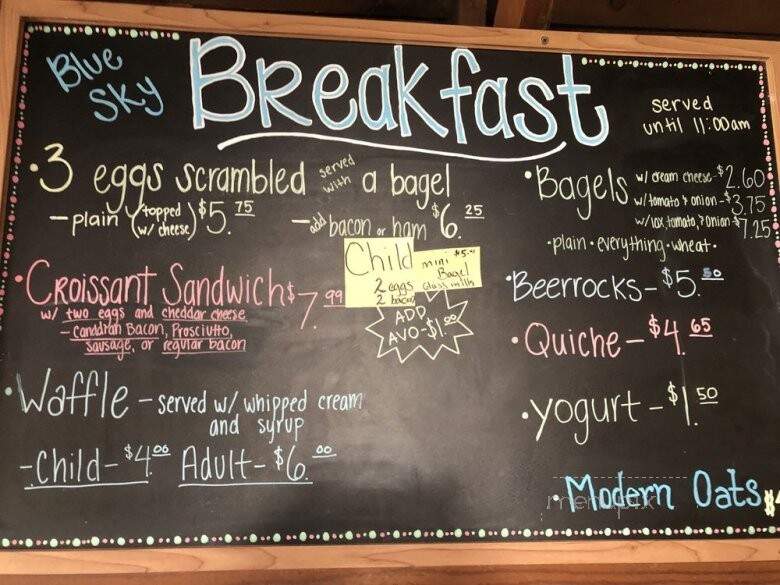 Blue Sky
Breakfast
served
until 11:00am
• 3 eggs scrambled served with a bagel
- plain (topped w/ cheese) $5.75
- add bacon or ham $6.25
• Croissant Sandwich $7.99
w/ two eggs and cheddar cheese
- Canadian Bacon, Prosciutto,
sausage, or regular bacon
Child
mini
Bagel
2 eggs glass milk
2 bacon
ADD
AVO-$1.00
• Waffle - served w/ whipped cream
and syrup
- Child - $4.00 Adult - $6.00
• Bagels w/ cream cheese - $2.60
w/ tomato & onion - $3.75
w/ lox, tomato, & onion - $7.25
• plain • everything • wheat •
• Beerrocks - $5.50
• Quiche - $4.65
• yogurt - $1.50
• Modern Oats
menupix